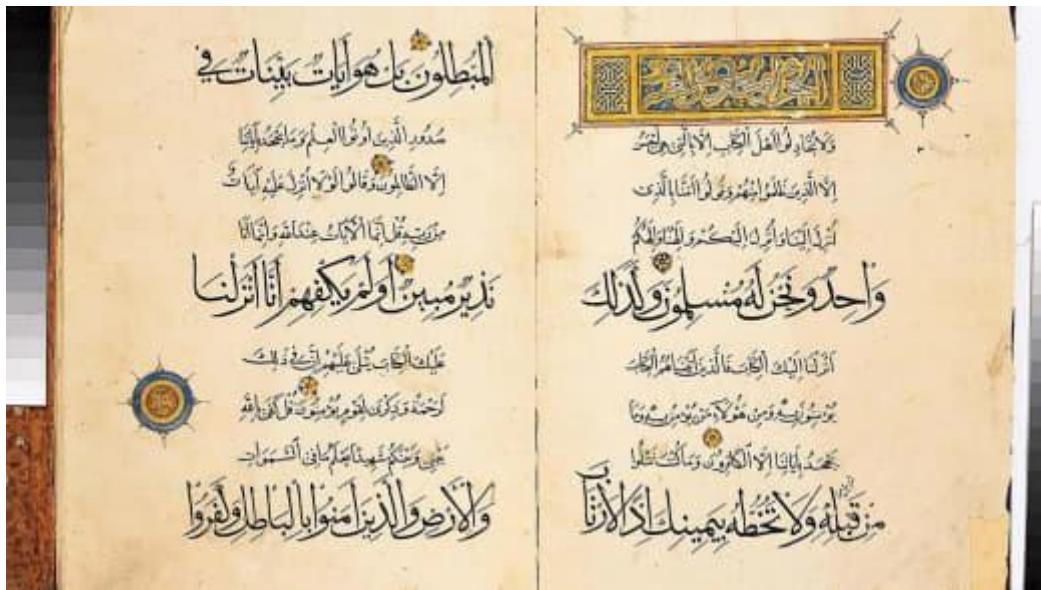 ولا تجادلوا اهل الكتاب الا بالتي هي احسن
الا الذين ظلموا منهم وقولوا امنا بالذي
انزل الينا وانزل اليكم والهنا والهكم
واحد ونحن له مسلمون وكذلك
انزلنا اليك الكتاب فالذين اتيناهم الكتاب
يؤمنون به ومن هؤلاء من يؤمن به وما
يجحد باياتنا الا الكافرون وما كنت تتلوا
من قبله ولا تخطه بيمينك اذا لارتاب
المبطلون بل هو ايات بينات في
صدور الذين اوتوا العلم وما يجحد باياتنا
الا الظالمون وقالوا لولا انزل عليه ايات
من ربه قل انما الايات عند الله وانما انا
نذير مبين اولم يكفهم انا انزلنا
عليك الكتاب يتلى عليهم ان في ذلك
لرحمة وذكرى لقوم يؤمنون قل كفى بالله
بيني وبينكم شهيدا يعلم ما في السموات
والارض والذين امنوا بالباطل وكفروا